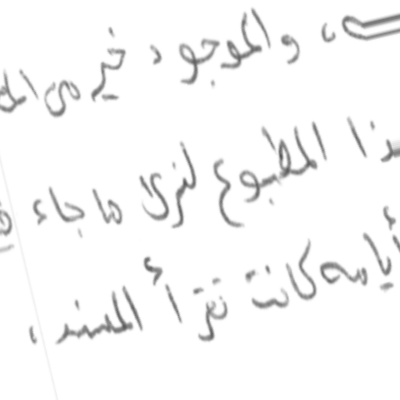 ، والموجود خير من
هذا المطبوع لنرى ما جاء
أيامه كانت تقرأ المسند ،